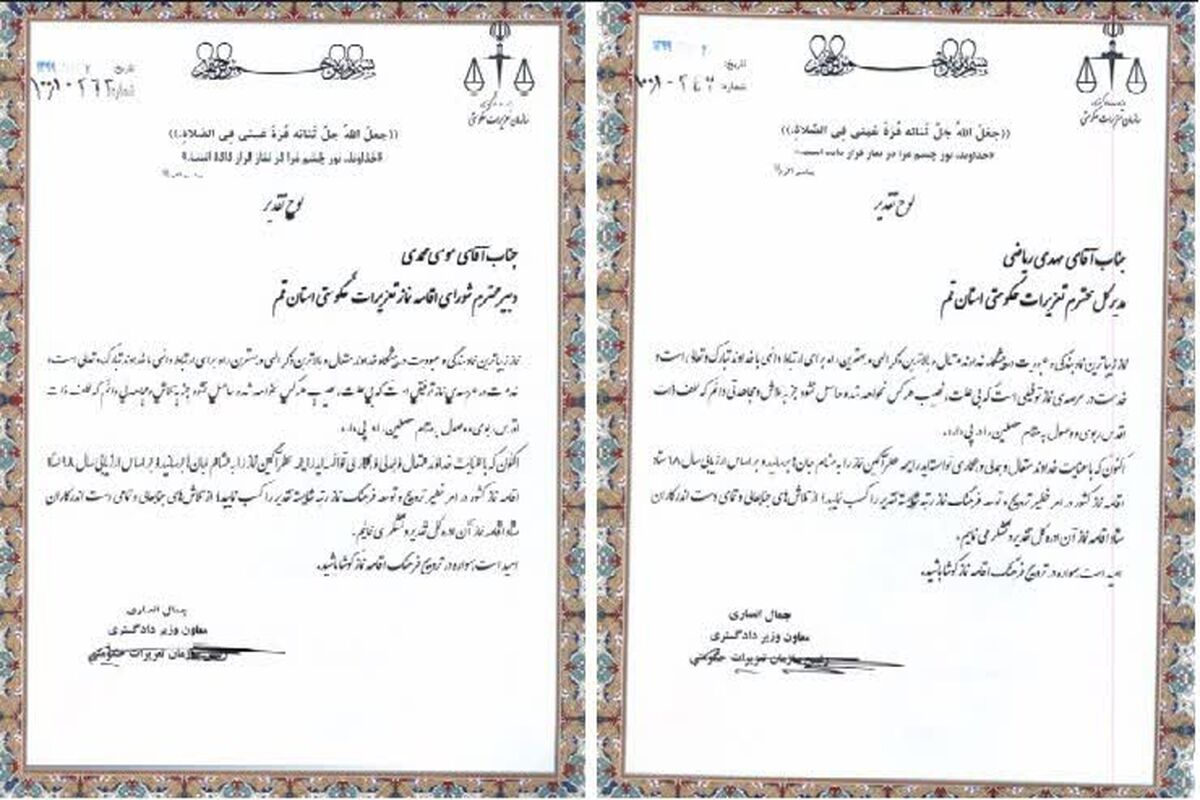 تاریخ:
شماره:
بسم الله الرحمن الرحیم
سازمان تعزیرات حکومتی
((جعل اللهُ جل ثنائه قُرة عینی فی الصّلاة.))
«خداوند، نور چشم مرا در نماز قرار داده است.»
لوح تقدیر
جناب آقای مهدی ریاضی
مدیرکل محترم تعزیرات حکومتی استان قم
نماز زیباترین نماد بندگی و عبودیت در پیشگاه خداوند متعال و بالاترین ذکر الهی و بهترین راه برای ارتباط دائمی با خداوند تبارک و تعالی است و
خدمت در عرصه‌ی نماز توفیقی است که بی علت، نصیب هرکس نخواهد شد و حاصل نشود جز به تلاش و مجاهدتی دائم که لطف ذات
اقدس ربوبی و وصول به مقام مصلین را در پی دارد.
اکنون که با عنایت خداوند متعال و همدلی و همکاری توانسته‌اید رایحه عطرآگین نماز را به مشام جان‌ها برسانید و بر اساس ارزیابی سال ۹۸ ستاد
اقامه نماز کشور در امر خطیر ترویج و توسعه فرهنگ نماز رتبه شایسته تقدیر را کسب نمایید؛ از تلاش‌های جنابعالی و تمامی دست اندرکاران
ستاد اقامه نماز آن اداره کل تقدیر و تشکر می نمایم.
امید است همواره در ترویج فرهنگ اقامه نماز کوشا باشید.
جمال انصاری
معاون وزیر دادگستری
رئیس سازمان تعزیرات حکومتی
تاریخ:
شماره:
بسم الله الرحمن الرحیم
سازمان تعزیرات حکومتی
((جعل اللهُ جل ثنائه قُرة عینی فی الصّلاة.))
«خداوند، نور چشم مرا در نماز قرار داده است.»
لوح تقدیر
جناب آقای موسی محمدی
دبیر محترم شورای اقامه نماز تعزیرات حکومتی استان قم
نماز زیباترین نماد بندگی و عبودیت در پیشگاه خداوند متعال و بالاترین ذکر الهی و بهترین راه برای ارتباط دائمی با خداوند تبارک و تعالی است و
خدمت در عرصه‌ی نماز توفیقی است که بی علت، نصیب هرکس نخواهد شد و حاصل نشود جز به تلاش و مجاهدتی دائم که لطف ذات
اقدس ربوبی و وصول به مقام مصلین را در پی دارد.
اکنون که با عنایت خداوند متعال و همدلی و همکاری توانسته‌اید رایحه عطرآگین نماز را به مشام جان‌ها برسانید و بر اساس ارزیابی سال ۹۸ ستاد
اقامه نماز کشور در امر خطیر ترویج و توسعه فرهنگ نماز رتبه شایسته تقدیر را کسب نمایید؛ از تلاش‌های جنابعالی و تمامی دست اندرکاران
ستاد اقامه نماز آن اداره کل تقدیر و تشکر می نمایم.
امید است همواره در ترویج فرهنگ اقامه نماز کوشا باشید.
جمال انصاری
معاون وزیر دادگستری
رئیس سازمان تعزیرات حکومتی